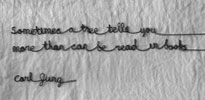 Sometimes a tree tells you
more than can be read in books
Carl Jung